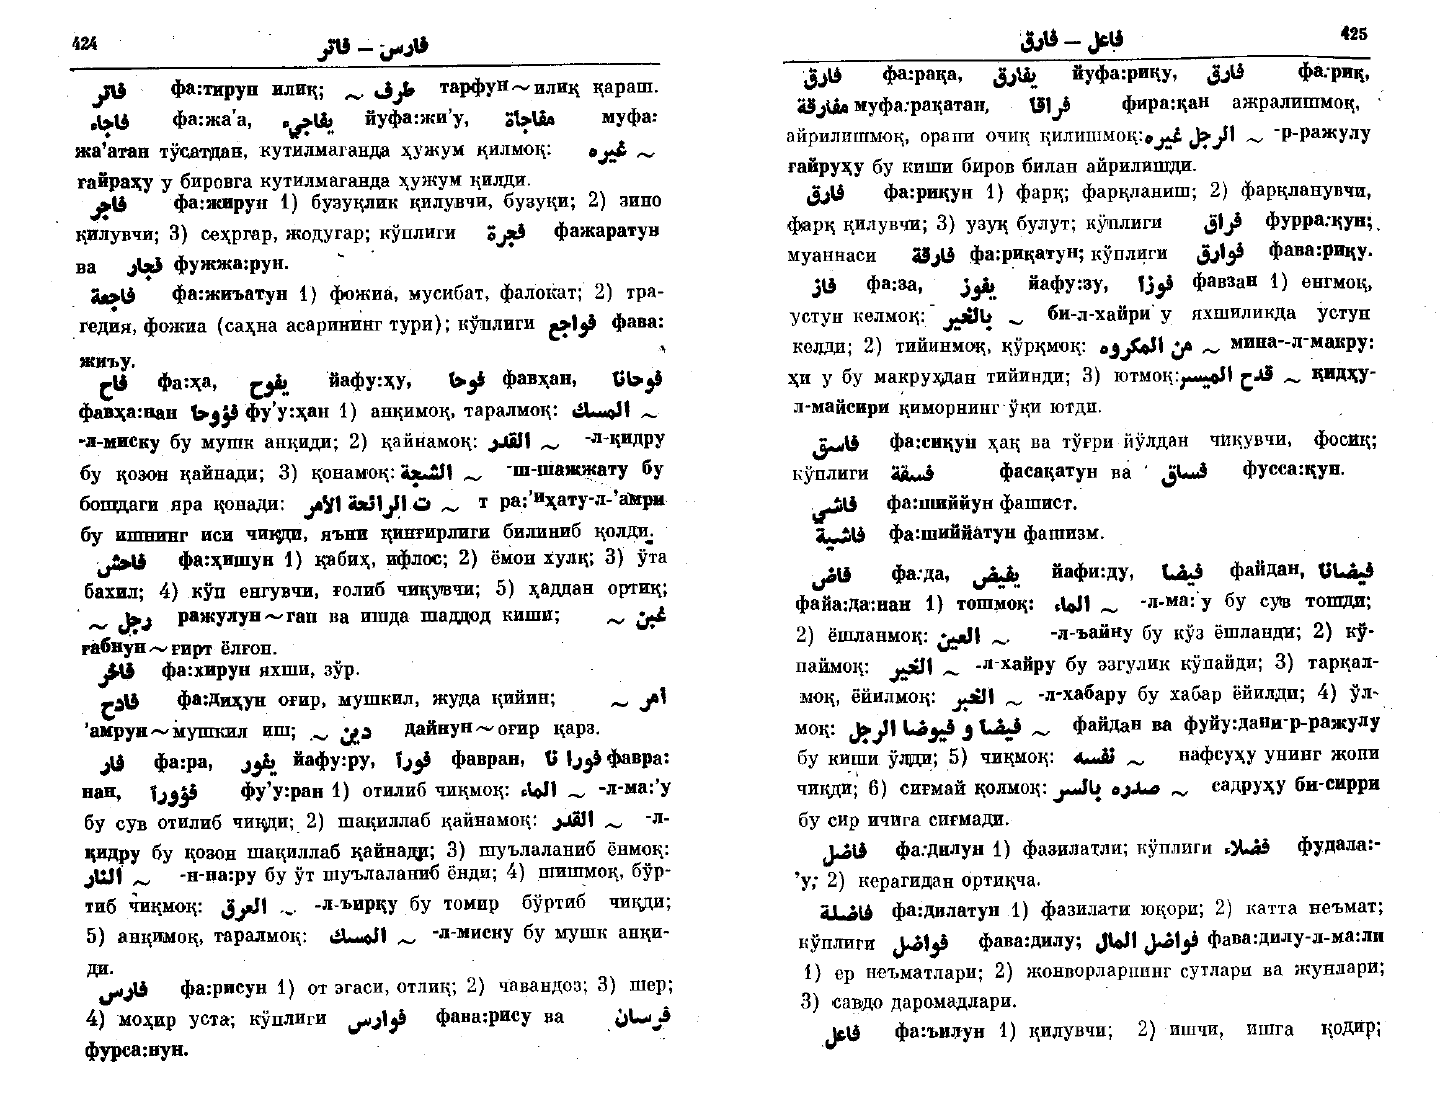 424
فاتر — فارس
فاتر фа:тирун илиқ; ~ طرف тарфун~илиқ қараш.
فاجاء фа:жа’а, يفاجيء йуфа:жи’у, مفاجاة муфа:
жа’атан тўсатдан, кутилмаганда ҳужум қилмоқ: ~ غيره
гайраҳу у бировга кутилмаганда ҳужум қилди.
فاجر фа:жирун 1) бузуқлик қилувчи, бузуқи; 2) зино
қилувчи; 3) сеҳргар, жодугар; кўплиги فجرة фажаратун
ва فجار фужжа:рун.
فاجعة фа:жиъатун 1) фожиа, мусибат, фалокат; 2) тра-
гедия, фожиа (саҳна асарининг тури); кўплиги فواجع фава:
жиъу.
فاح фа:ҳа, يفوح йафу:ҳу, فوحا фавҳан, فوحانا
фавҳа:нан فؤوحا фу’у:ҳан 1) анқимоқ, таралмоқ: المسك ~
-л-миску бу мушк анқиди; 2) қайнамоқ: القدر ~ -л-қидру
бу қозон қайнади; 3) қонамоқ: الشجة ~ -ш-шажжату бу
бошдаги яра қонади: ت الرائحة الأمر ~ т ра:’иҳату-л-’амри
бу ишнинг иси чиқди, яъни қинғирлиги билиниб қолди.
فاحش фа:ҳишун 1) қабиҳ, ифлос; 2) ёмон хулқ; 3) ўта
бахил; 4) кўп енгувчи, ғолиб чиқувчи; 5) ҳаддан ортиқ;
~ رجل ражулун~гап ва ишда шаддод киши; ~ غبن
ғабнун~ғирт ёлғон.
فاخر фа:хирун яхши, зўр.
فادح фа:Диҳун оғир, мушкил, жуда қийин; ~ أمر
’амрун~мушкил иш; ~ دين Дайнун~оғир қарз.
فار фа:ра, يفور йафу:ру, فورآ фавран, فورا نا фавра:
нан, فؤورآ фу’у:ран 1) отилиб чиқмоқ: الماء ~ -л-ма:’у
бу сув отилиб чиқди; 2) шақиллаб қайнамоқ: القدر ~ -л-
қидру бу қозон шақиллаб қайнади; 3) шуълаланиб ёнмоқ:
النار ~ -н-на:ру бу ўт шуълаланиб ёнди; 4) шишмоқ, бўр-
тиб чиқмоқ: العرق ~ -л-ъирқу бу томир бўртиб чиқди;
5) анқимоқ, таралмоқ: المسك ~ -л-миску бу мушк анқи-
ди.
فارس фа:рисун 1) от эгаси, отлиқ; 2) чавандоз; 3) шер;
4) моҳир уста; кўплиги فوارس фава:рису ва فرسان
фурса:нун.
فارق — فاعل
425
فارق фа:рақа, يفارق йуфа:риқу, فارق фа:риқ,
مفارقة муфа:рақатан, فراقا фира:қан ажралишмоқ,
айрилишмоқ, орани очиқ қилишмоқ: الرجل غيره ~ -р-ражулу
ғайруҳу бу киши биров билан айрилишди.
فارق фа:риқун 1) фарқ; фарқланиш; 2) фарқланувчи,
фарқ қилувчи; 3) узуқ булут; кўплиги فراق фурра:қун;
муаннаси فارقة фа:риқатун; кўплиги فوارق фава:риқу.
فاز фа:за, يفوز йафу:зу, فوزا фавзан 1) енгмоқ,
устун келмоқ: بالخير ~ би-л-хайри у яхшиликда устун
келди; 2) тийинмоқ, қўрқмоқ: من المكروه ~ мина--л-макру:
ҳи у бу макруҳдан тийинди; 3) ютмоқ: قدح الميسر ~ қидҳу-
л-майсири қиморнинг ўқи ютди.
فاسق фа:сиқун ҳақ ва тўғри йўлдан чиқувчи, фосиқ;
кўплиги فسقة фасақатун ва فساق фусса:қун.
فاشي фа:шиййун фашист.
فاشية фа:шиййатун фашизм.
فاض фа:да, يفيض йафи:ду, فيضا файдан, فيضانا
файа:Да:нан 1) тошмоқ: الماء ~ -л-ма:’у бу сув тошди;
2) ёшланмоқ: العين ~ -л-ъайну бу кўз ёшланди; 2) кў-
паймоқ: الخير ~ -л-хайру бу эзгулик кўпайди; 3) тарқал-
моқ, ёйилмоқ: الخبر ~ -л-хабару бу хабар ёйилди; 4) ўл-
моқ: فيضا و فيوضا الرجل ~ файдан ва фуйу:дани-р-ражулу
бу киши ўлди; 5) чиқмоқ: نفسه ~ нафсуҳу унинг жони
чиқди; 6) сиғмай қолмоқ: صدره بالسر ~ садруҳу би-сирри
бу сир ичига сиғмади.
فاضل фа:дилун 1) фазилатли; кўплиги فضلاء фудала:-
’у; 2) керагидан ортиқча.
فاضلة фа:дилатун 1) фазилати юқори; 2) катта неъмат;
кўплиги فواضل фава:дилу; فواضل المال фава:дилу-л-ма:ли
1) ер неъматлари; 2) жонворларнинг сутлари ва жунлари;
3) савдо даромадлари.
فاعل фа:ъилун 1) қилувчи; 2) ишчи, ишга қодир;